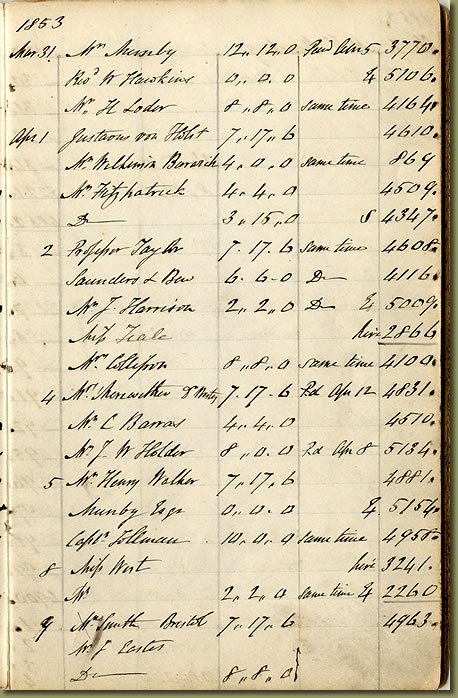 1853
Mar 31. Mr Munby 12,, 12,, 0 Paid Apr 5 3770.
Revd W Hawkins 0,, 0. 0 5106.
Mr. H Loder 8,, 8,, 0 same time 4164.
Apr 1 Gustavus von Holst 7,, 17,, 6 4610.
Mr Wilkinson 4,, 0,, 0 same time 869
Mr Fitzpatrick 4,, 4,, 0 4509.
Do 3,, 15,, 0 4347.
2 Professor Taylor 7. 17. 6 same time 4608.
Saunders & 6. 6. 0 Do 4116.
Mr J. Harrison 2,, 2,, 0 Do 5009.
Miss Teale hire 2866
8,, 8,, 0 same time 4100.
4 Mr. Merewether 7. 17. 6 Pd Apr 12 4831.
Mr C Barras 4,, 4,, 0 4510.
Mr J. W Holder 8,, 0. 0 Pd Apr 8 5134.
5 Mr Henry Walker 7,, 17,, 6 4881.
Munby Esqr 0,, 0. 0 5154.
Captn. Tollman 10,, 0,, 0 same time 4958.
8 Miss West hire 3241.
Mr 2,, 2,, 0 same time 2260
9 Mr Smith Bristol 7,, 17,, 6 4963.
Mr J Eastes
Do 8,, 8,, 0